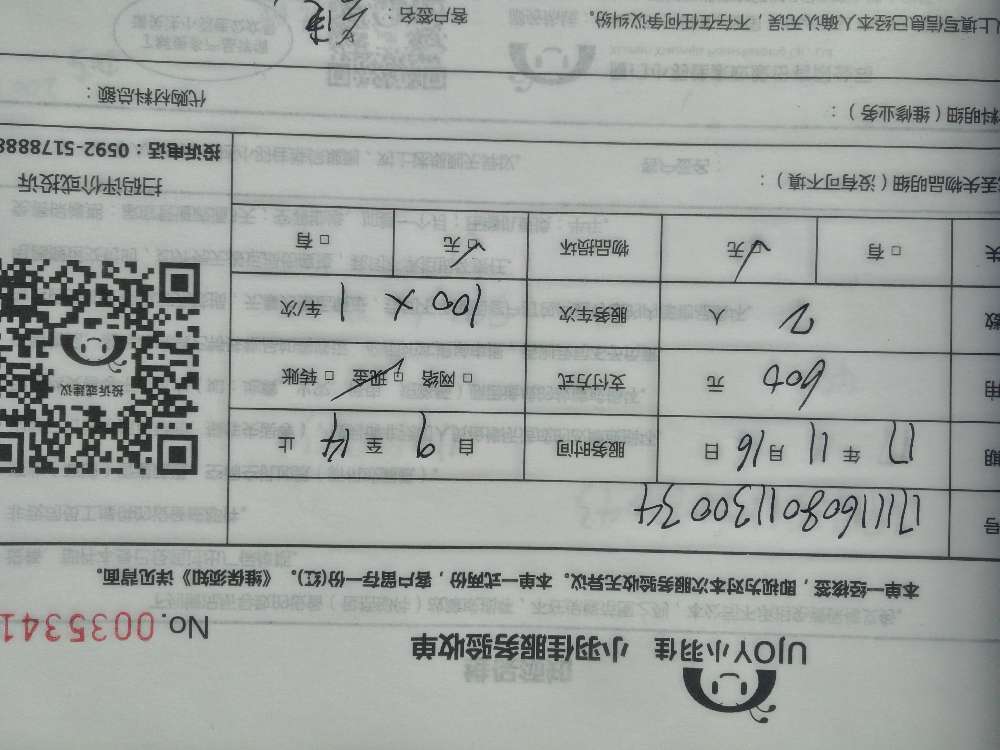 UJOY小羽佳 小羽佳服务验收单
No. 0035341
本单一经核签，即视为对本次服务验收无异议。本单一式两份，客户留存一份(红)。《维保须知》详见背面。
号
期 17 年 11 月 16 日 服务时间 自 9 至 14 止
用 600 元 支付方式 □ 网络 □ 现金 □ 转账
数 2 人 服务车次 100 × 1 车/次
失 □ 有 □ 无 物品损坏 □ 无 □ 有
丢失物品明细（没有可不填）：
投诉或建议
扫码评价或投诉
投诉电话：0592-5178888
料明细（维修业务）： 代购材料总额：
以上填写信息已经本人确认无误，不存在任何争议纠纷。 客户签名：